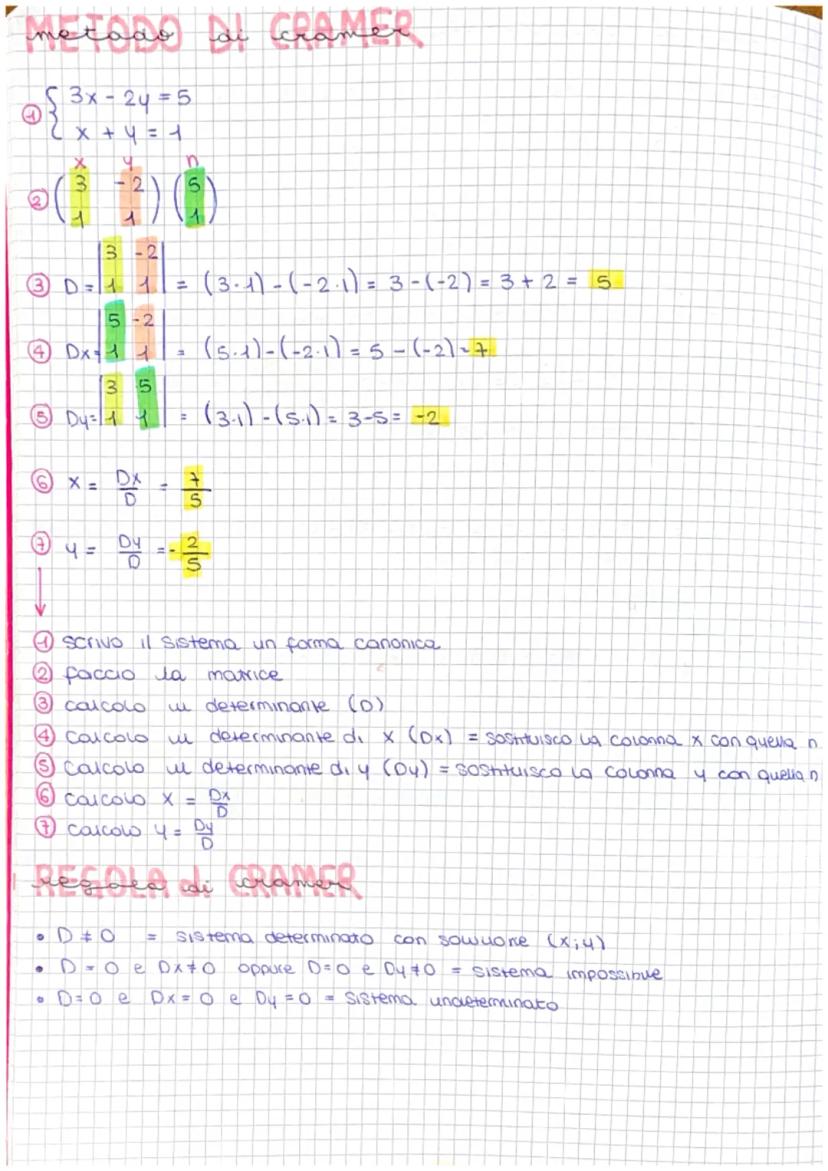 metodo di cramer
① { 3x - 2y = 5
x + y = 1
x y n
② ( 3 -2 ) ( 5 )
( 1 1 ) ( 1 )
| 3 -2 |
③ D = | 1 1 | = (3·1) - (-2·1) = 3 - (-2) = 3 + 2 = 5
| 5 -2 |
④ Dx = | 1 1 | = (5·1) - (-2·1) = 5 - (-2) = 7
| 3 5 |
⑤ Dy = | 1 1 | = (3·1) - (5·1) = 3 - 5 = -2
⑥ x = Dx/D = 7/5
⑦ y = Dy/D = - 2/5
① scrivo il sistema in forma canonica
② faccio la matrice
③ calcolo il determinante (D)
④ calcolo il determinante di x (Dx) = sostituisco la colonna x con quella n
⑤ calcolo il determinante di y (Dy) = sostituisco la colonna y con quella n
⑥ calcolo x = Dx/D
⑦ calcolo y = Dy/D
regola di cramer
• D ≠ 0 = sistema determinato con soluzione (x;y)
• D = 0 e Dx ≠ 0 oppure D = 0 e Dy ≠ 0 = sistema impossibile
• D = 0 e Dx = 0 e Dy = 0 = sistema indeterminato